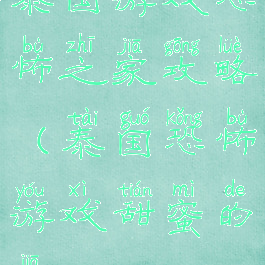 泰国游戏恐
bù zhī jiā gōng lüè
怖之家攻略
tài guó kǒng bù
(泰国恐怖
yóu xì tián mì de
游戏甜蜜的
jiā